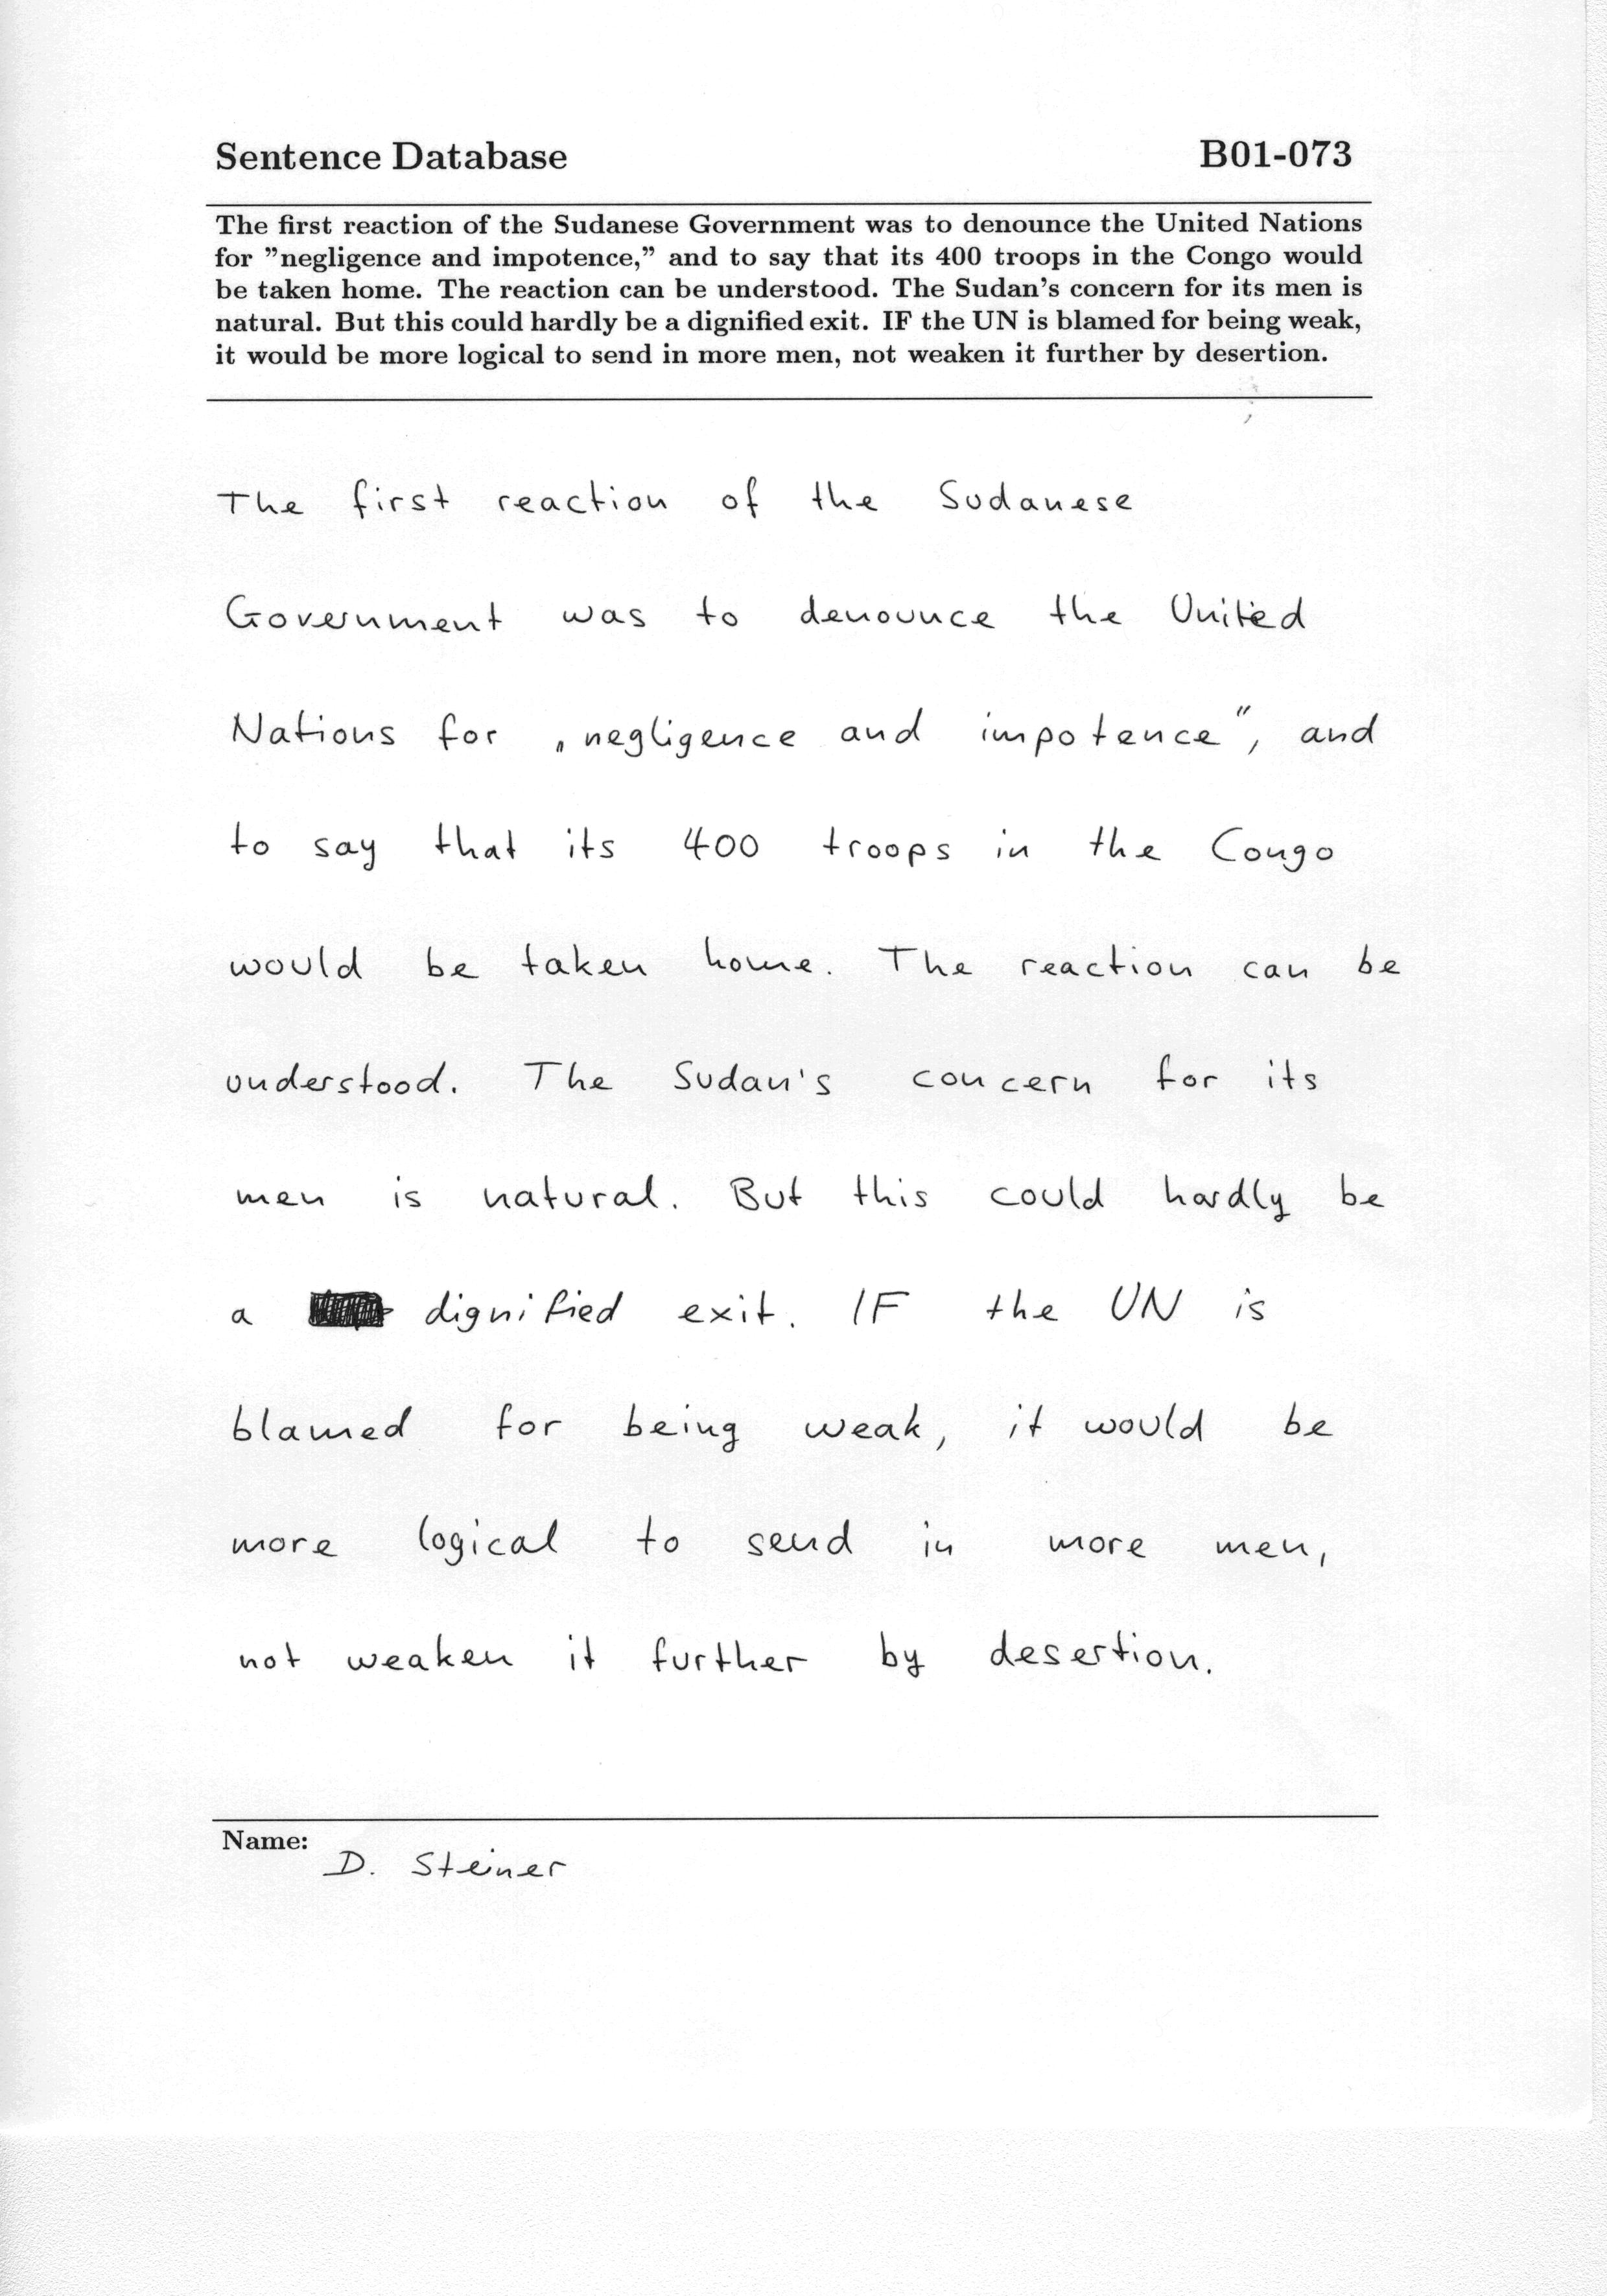 Sentence Database B01-073
The first reaction of the Sudanese Government was to denounce the United Nations
for ”negligence and impotence,” and to say that its 400 troops in the Congo would
be taken home. The reaction can be understood. The Sudan’s concern for its men is
natural. But this could hardly be a dignified exit. IF the UN is blamed for being weak,
it would be more logical to send in more men, not weaken it further by desertion.
The first reaction of the Sudanese
Government was to denounce the United
Nations for „negligence and impotence”, and
to say that its 400 troops in the Congo
would be taken home. The reaction can be
understood. The Sudan's concern for its
men is natural. But this could hardly be
a dignified exit. IF the UN is
blamed for being weak, it would be
more logical to send in more men,
not weaken it further by desertion.
Name:
D. Steiner